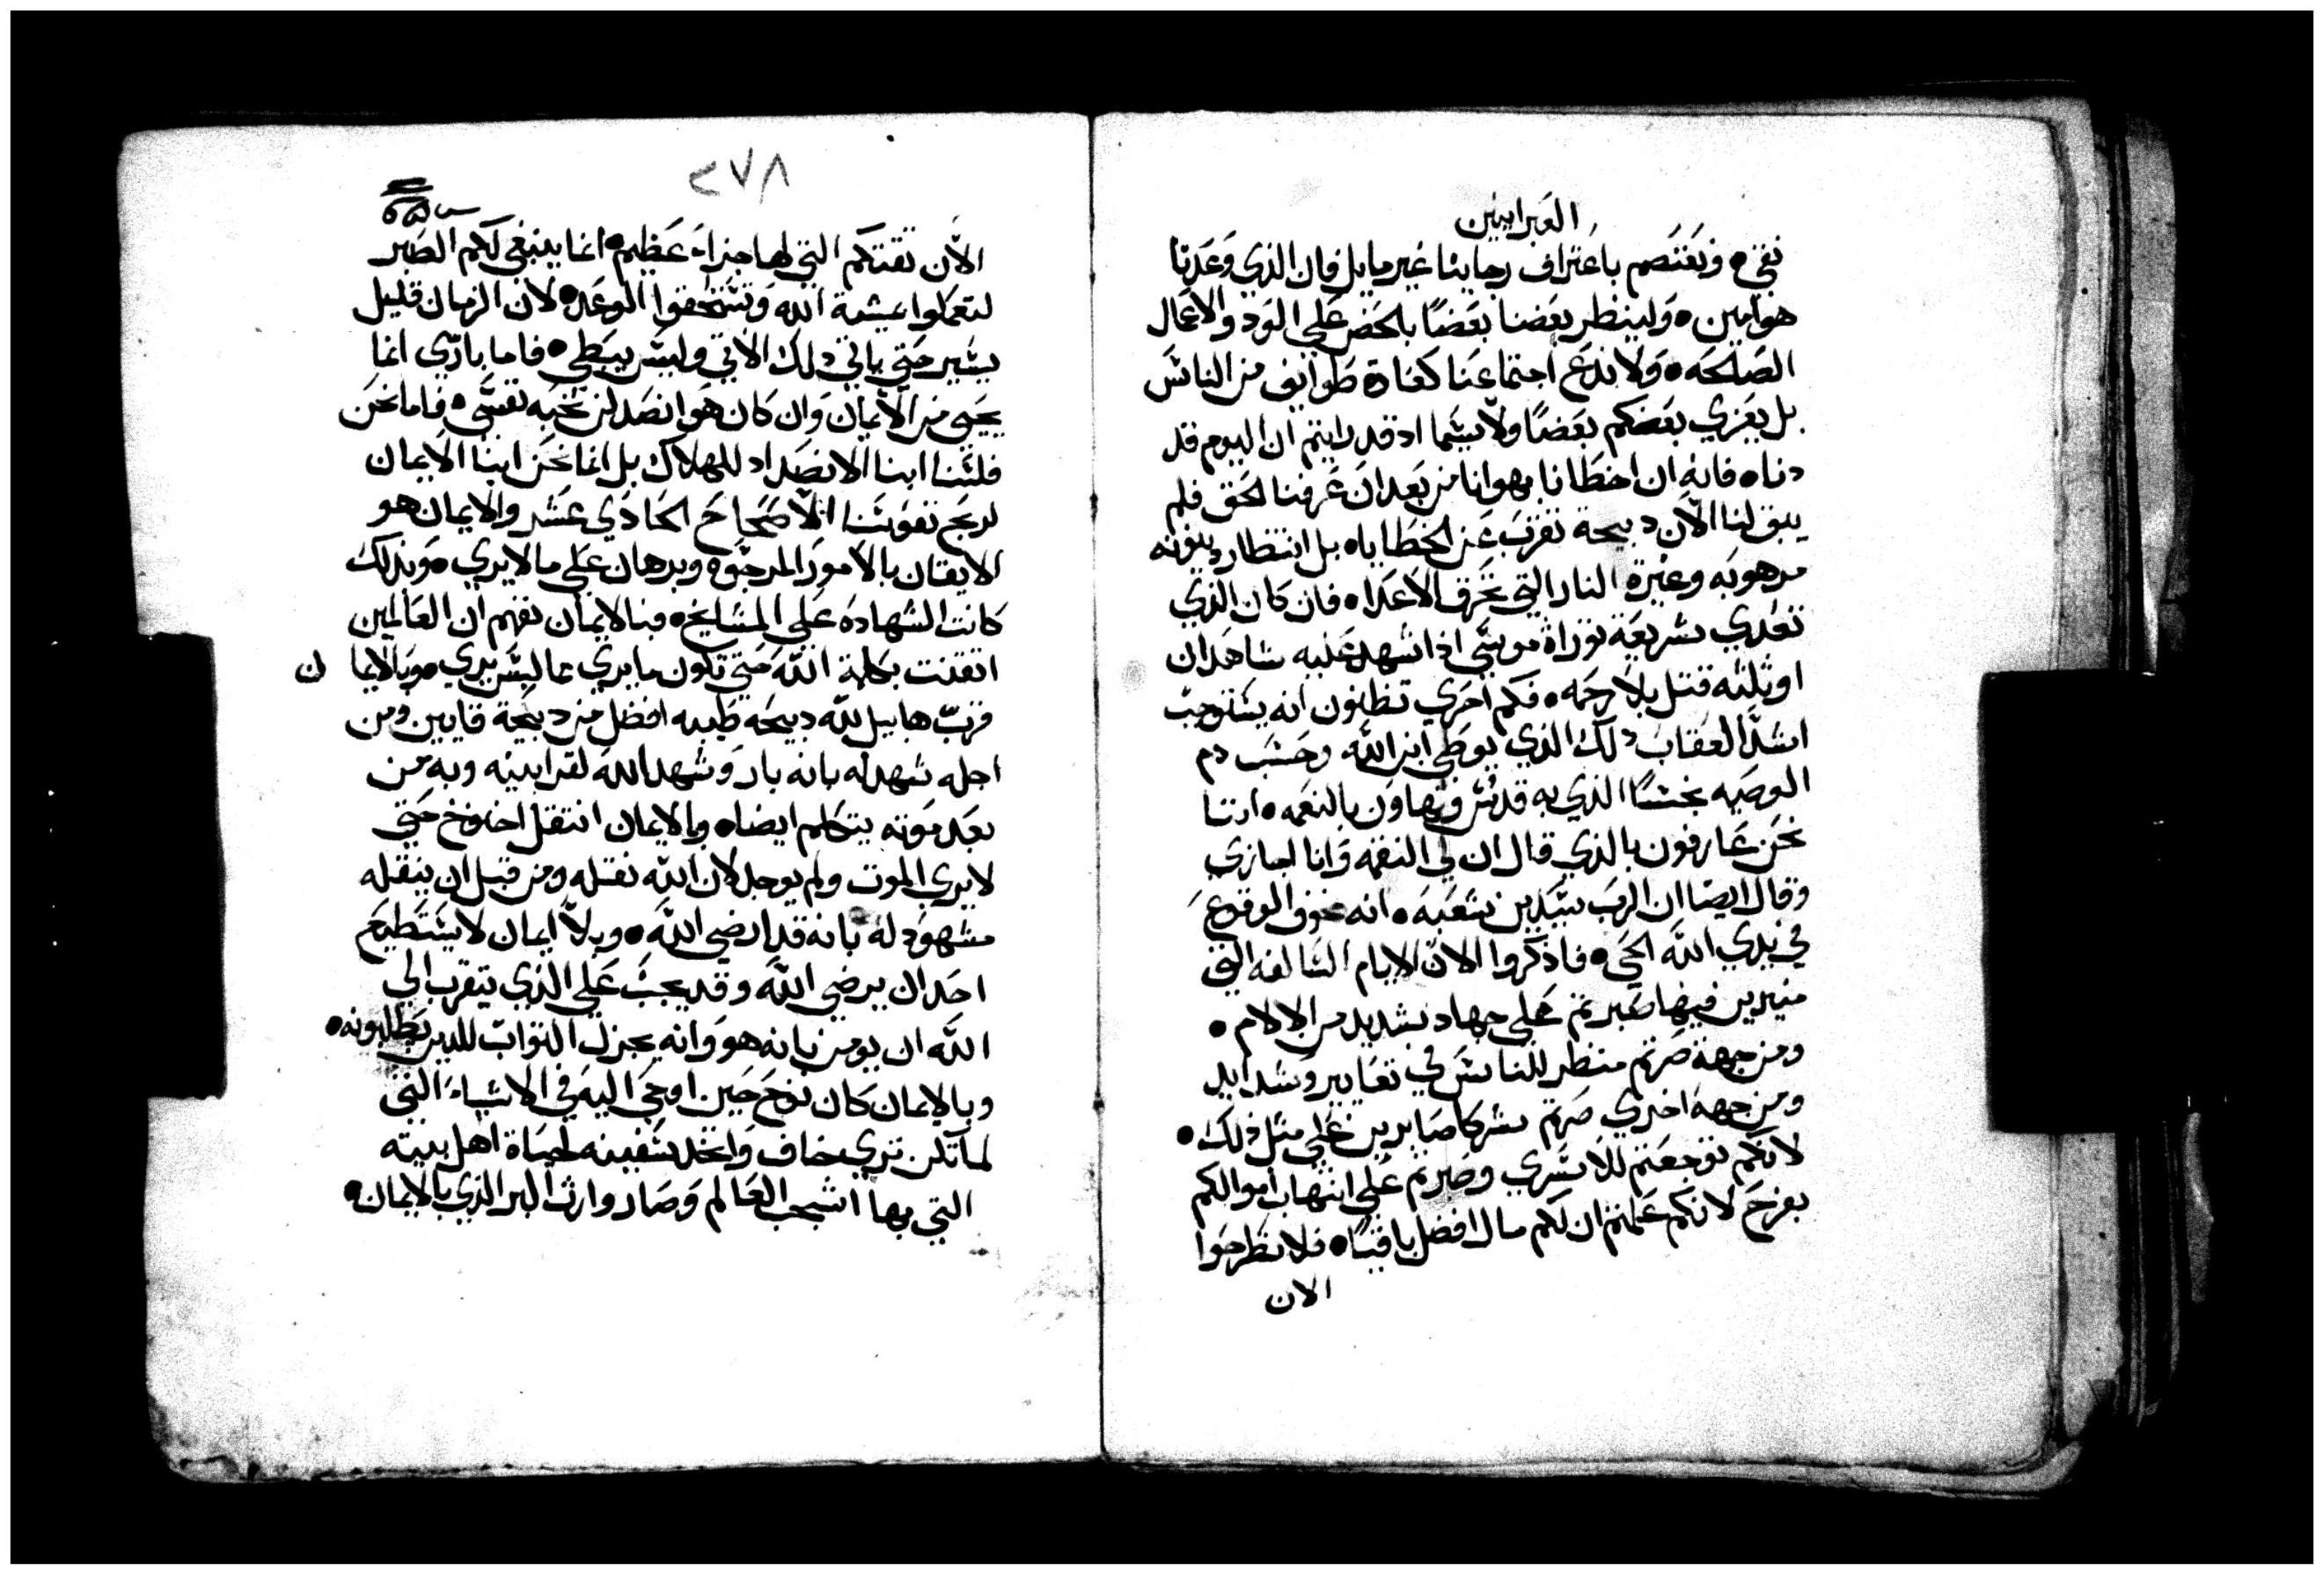 العبرانيين
نقي • ونعتصم باعتراف رجايينا غير مايل فان الذي وعدنا
هو امين • ولينظر بعضنا بعضًا بالحض على الود والاعمال
الصالحه • ولا ندع اجتماعنا كعادة طوايف من الناس
بل يعزي بعضكم بعضًا ولا سيما اد قد رايتم ان اليوم قد
دنا • فانه ان اخطانا بهوانا من بعد ان عرفنا الحق فلم
يبق لنا الآن دبيحة تقرب عن الخطايا • بل انتظار دينونه
مرهوبه وغيرة النار التي تحرق الاعدا • فان كان الذي
تعدي بشريعة توراة موسي ادا شهد عليه شاهدان
او ثلثه قتل بلا رحمه • فكم احري تظنون انه يستوجب
اشد العقاب دلك الذي يوطي ابن الله وحسب دم
الوصيه نجسًا الذي به قدس وتهاون بالنعمه • اننا
نحن عارفون بالذي قال ان لي النقمه وانا اجازي
وقال ايضا ان الرب سيدين شعبه • انه مخوف الوقوع
في يدي الله الحي • فاذكروا الان الايام السالفه التي
منيرين فيها صبرتم على جهاد شديد من الالام •
ومن جهة صرتم منظر للناس في تعايير وشدايد
ومن جهة اخري صرتم شركا صابرين على مثل ذلك •
لانكم توجعتم للاسري وصبرتم على انتهاب اموالكم
بفرح لانكم علمتم ان لكم مال افضل باقيًا • فلا تطرحوا
الان
٢٧٨
الآن ثقتكم التي لها جزاء عظيم • انما ينبغي لكم الصبر
لتعملوا مشية الله وتستحقوا الوعد • لان الزمان قليل
يسير حتي ياتي دلك الاتي وليس يبطي • فاما باري انما
يحيي من الايمان وان كان هو انصد لن تحبه نفسي • فاما نحن
فلسنا ابنا الانصداد للهلاك بل انما نحن ابنا الايمان
لربح نفوسنا الاصحاح الحادي عشر والايمان هو
الايقان بالامور المرجوه وبرهان على ما لا يري • وبدلك
كانت الشهادة على المشايخ • فبالايمان نفهم ان العالمين
اتقنت بكلمة الله حتي تكون ما يري مما ليس يري • وبالايما ن
قرب هابيل لله دبيحه طيبه افضل من دبيحة قايين ومن
اجله شهد له بانه بار وشهد الله لقرابينه وبه من
بعد موته يتكلم ايضا • وبالايمان انتقل اخنوخ حتي
لا يري الموت ولم يوجد لان الله نقله ومن قبل ان ينقله
مشهود له بانه قد ارضي الله • وبلا ايمان لا يستطيع
احد ان يرضي الله وقد يجب على الذي يتقرب الي
الله ان يومن بانه هو وانه يجزل الثواب للدين يطلبونه •
وبالايمان كان نوح حين اوحي اليه في الاشياء التي
لم تكن تري خاف واتخد سفينه لحياة اهل بيته
التي بها اشجب العالم وصار وارث البر الذي بالايمان •